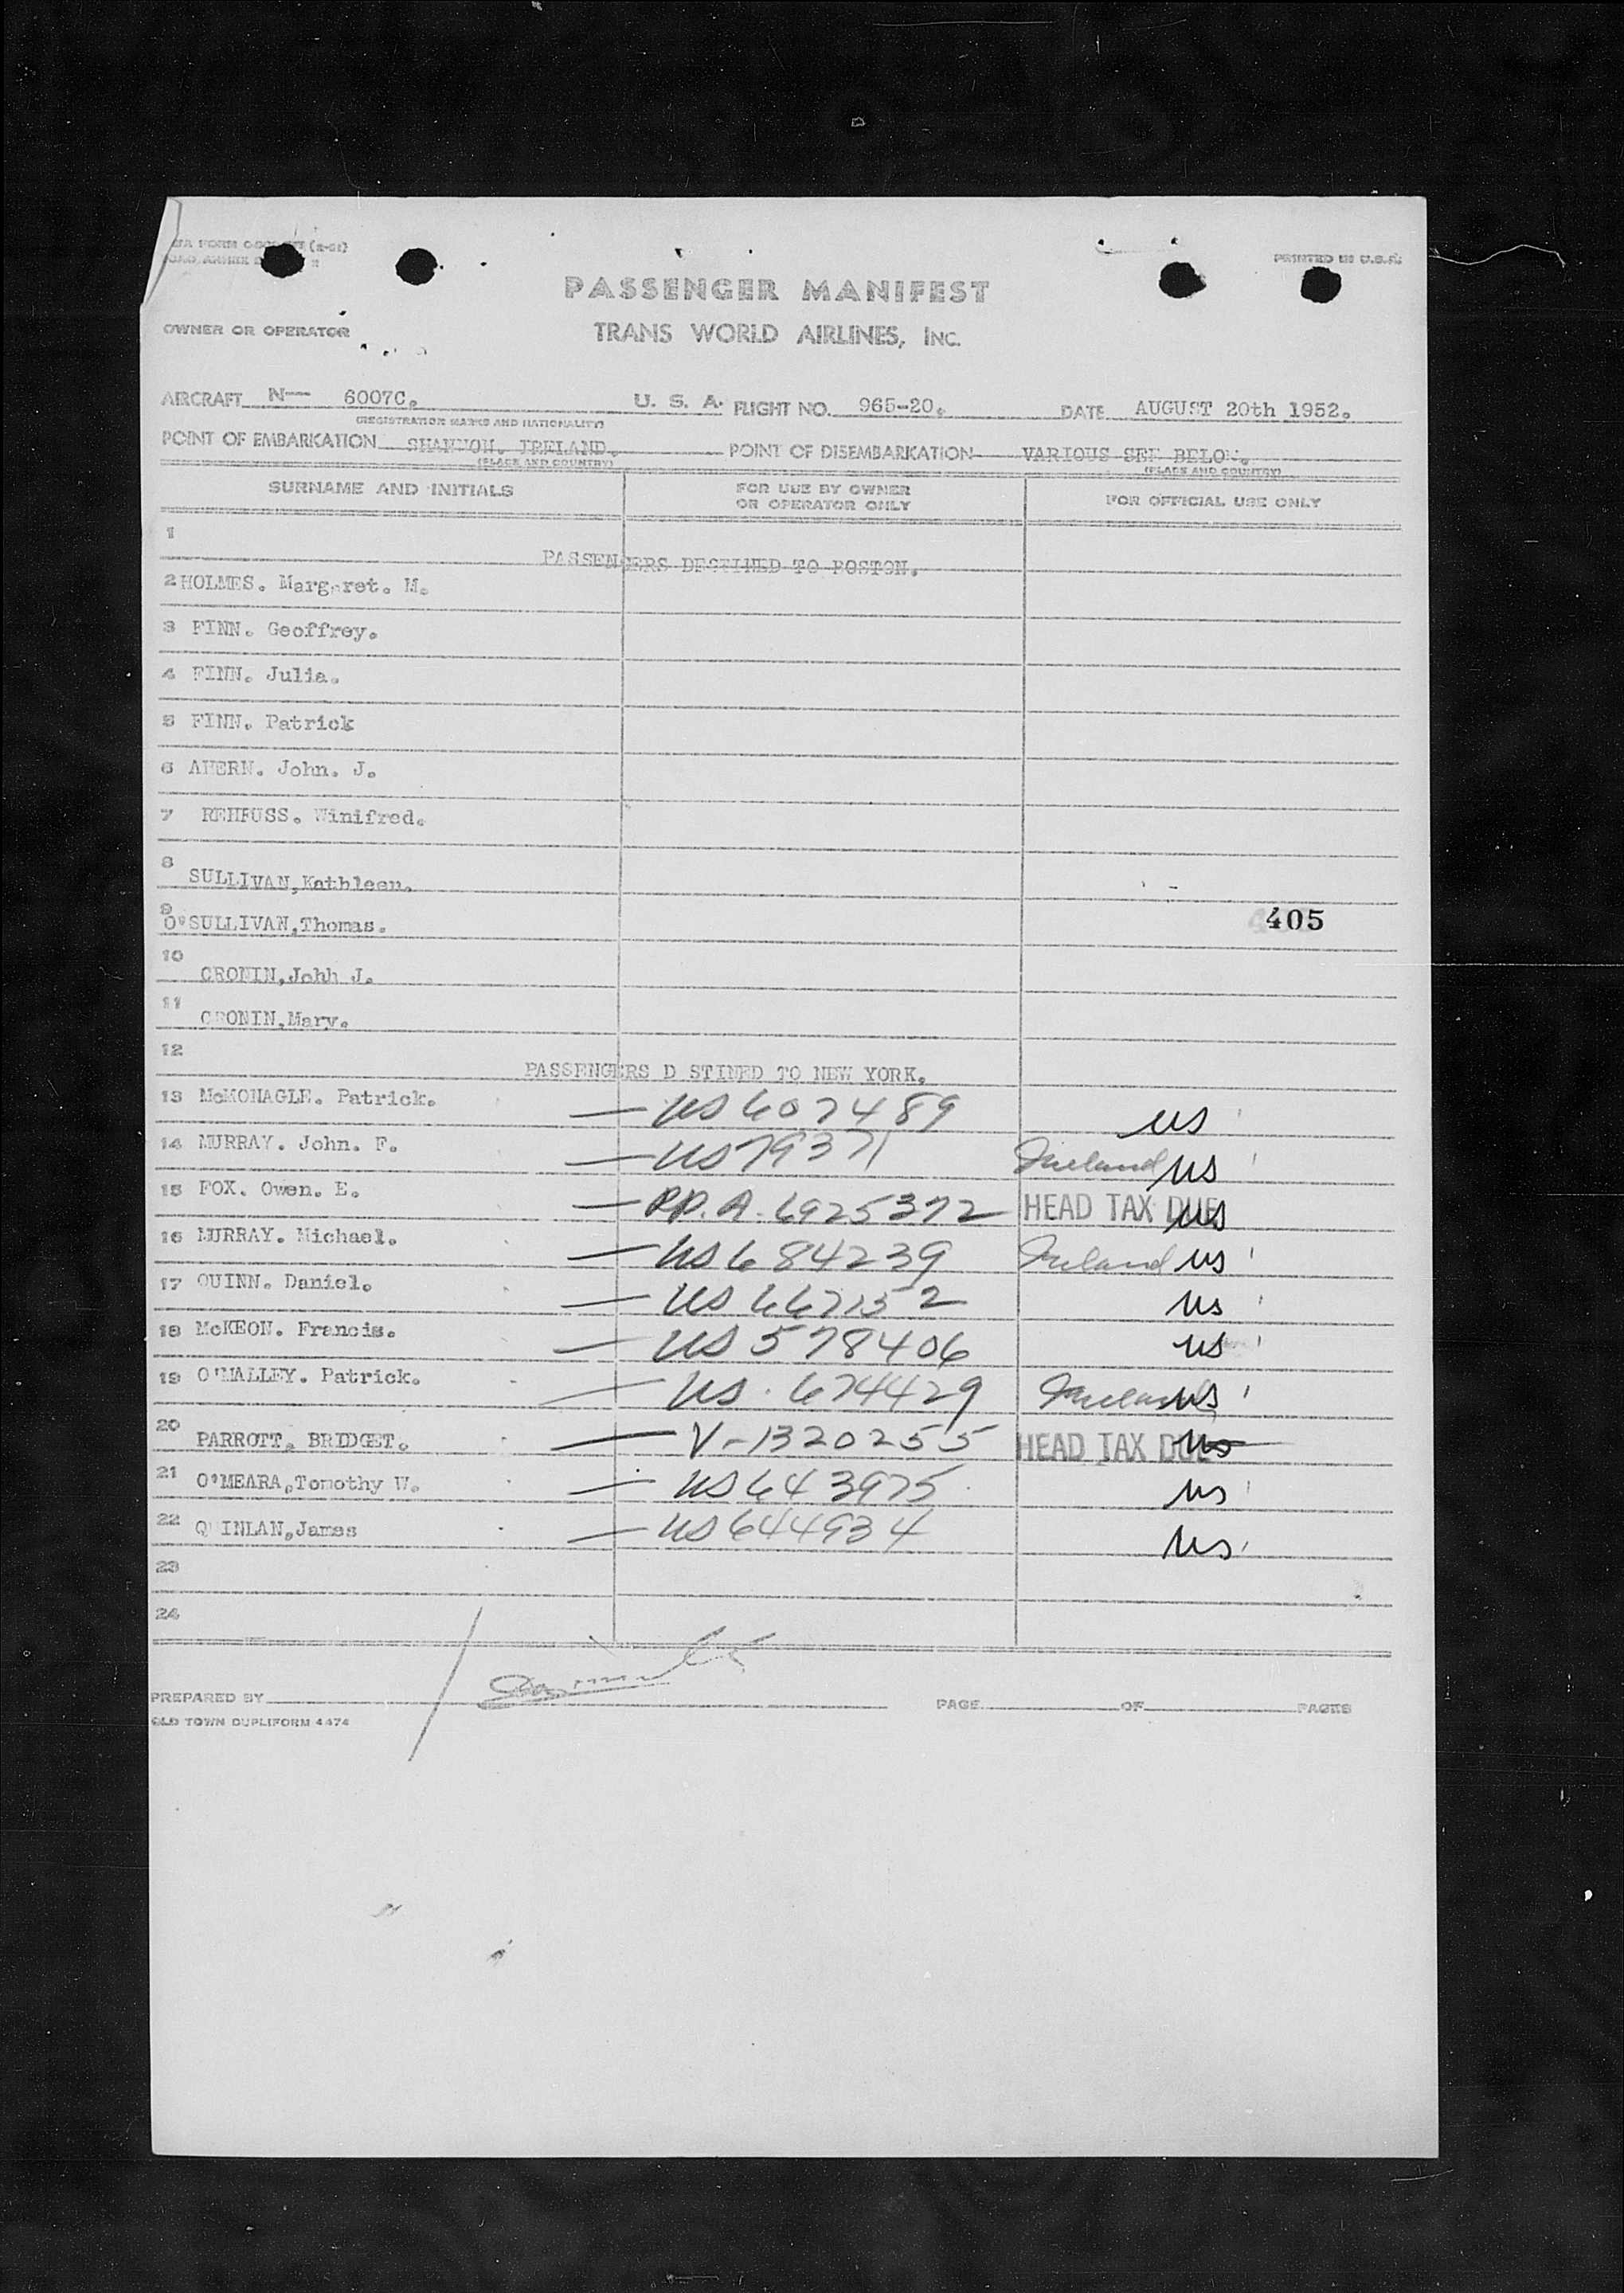 PRINTED IN U.S.A.
PASSENGER MANIFEST
OWNER OR OPERATOR
TRANS WORLD AIRLINES, INC.
AIRCRAFT N— 6007C. U. S. A. FLIGHT NO. 965-20. DATE AUGUST 20th 1952.
(REGISTRATION MARKS AND NATIONALITY)
POINT OF EMBARKATION SHANNON. IRELAND. POINT OF DISEMBARKATION VARIOUS SEE BELOW.
(PLACE AND COUNTRY) (PLACE AND COUNTRY)
SURNAME AND INITIALS FOR USE BY OWNER OR OPERATOR ONLY FOR OFFICIAL USE ONLY
1
PASSENGERS DESTINED TO BOSTON.
2 HOLMES. Margaret. M.
3 FINN. Geoffrey.
4 FINN. Julia.
5 FINN. Patrick
6 AHERN. John. J.
7 REHFUSS. Winifred.
8 SULLIVAN,Kathleen.
9 O'SULLIVAN,Thomas. 405
10 CRONIN,Johh J.
11 CRONIN,Mary.
12
PASSENGERS D STINED TO NEW YORK.
13 McMONAGLE. Patrick. — US 607489 US
14 MURRAY. John. F. — US 79371 Ireland US
15 FOX. Owen. E. — PP. A. 6925372 HEAD TAX DUE US
16 MURRAY. Michael. — US 684239 Ireland US
17 QUINN. Daniel. — US 667152 US
18 McKEON. Francis. — US 578406 US
19 O'MALLEY. Patrick. — US. 674429 Ireland US
20 PARROTT. BRIDGET. — V-1320255 HEAD TAX DUE US
21 O'MEARA,Tomothy W. — US 643975 US
22 QUINLAN,James — US 644934 US
23
24
PREPARED BY PAGE OF PAGES
OLD TOWN DUPLIFORM 4474